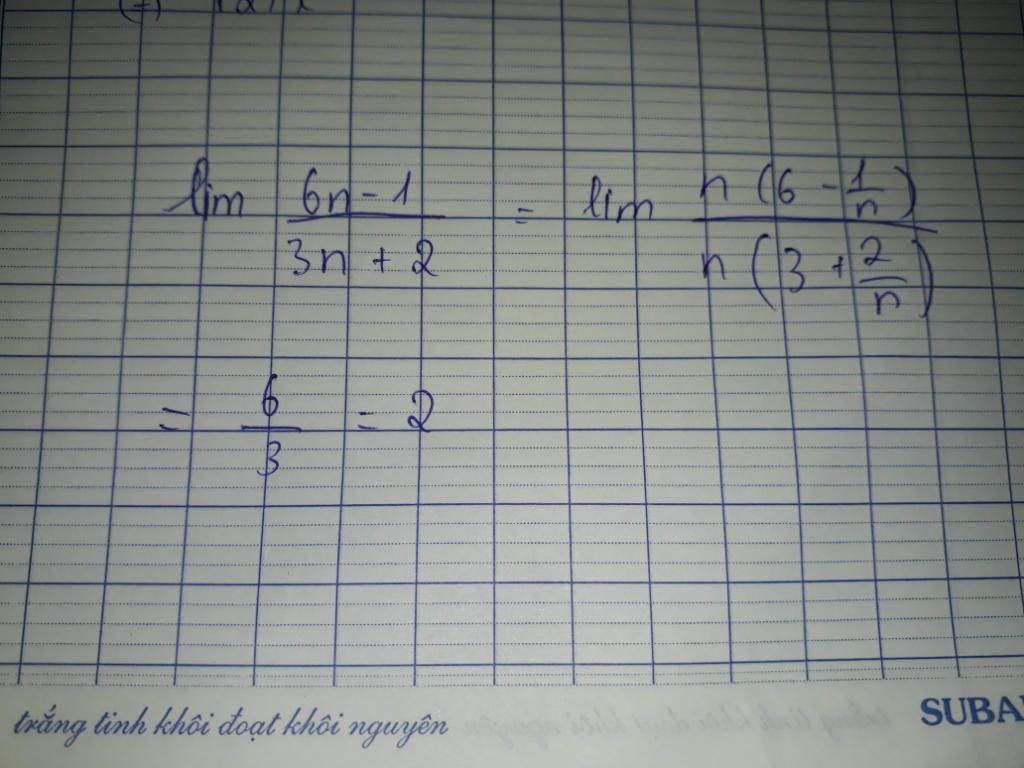 lim (6n - 1)/(3n + 2) = lim (n (6 - 1/n))/(n (3 + 2/n))
= 6/3 = 2
trắng tinh khôi đoạt khôi nguyên